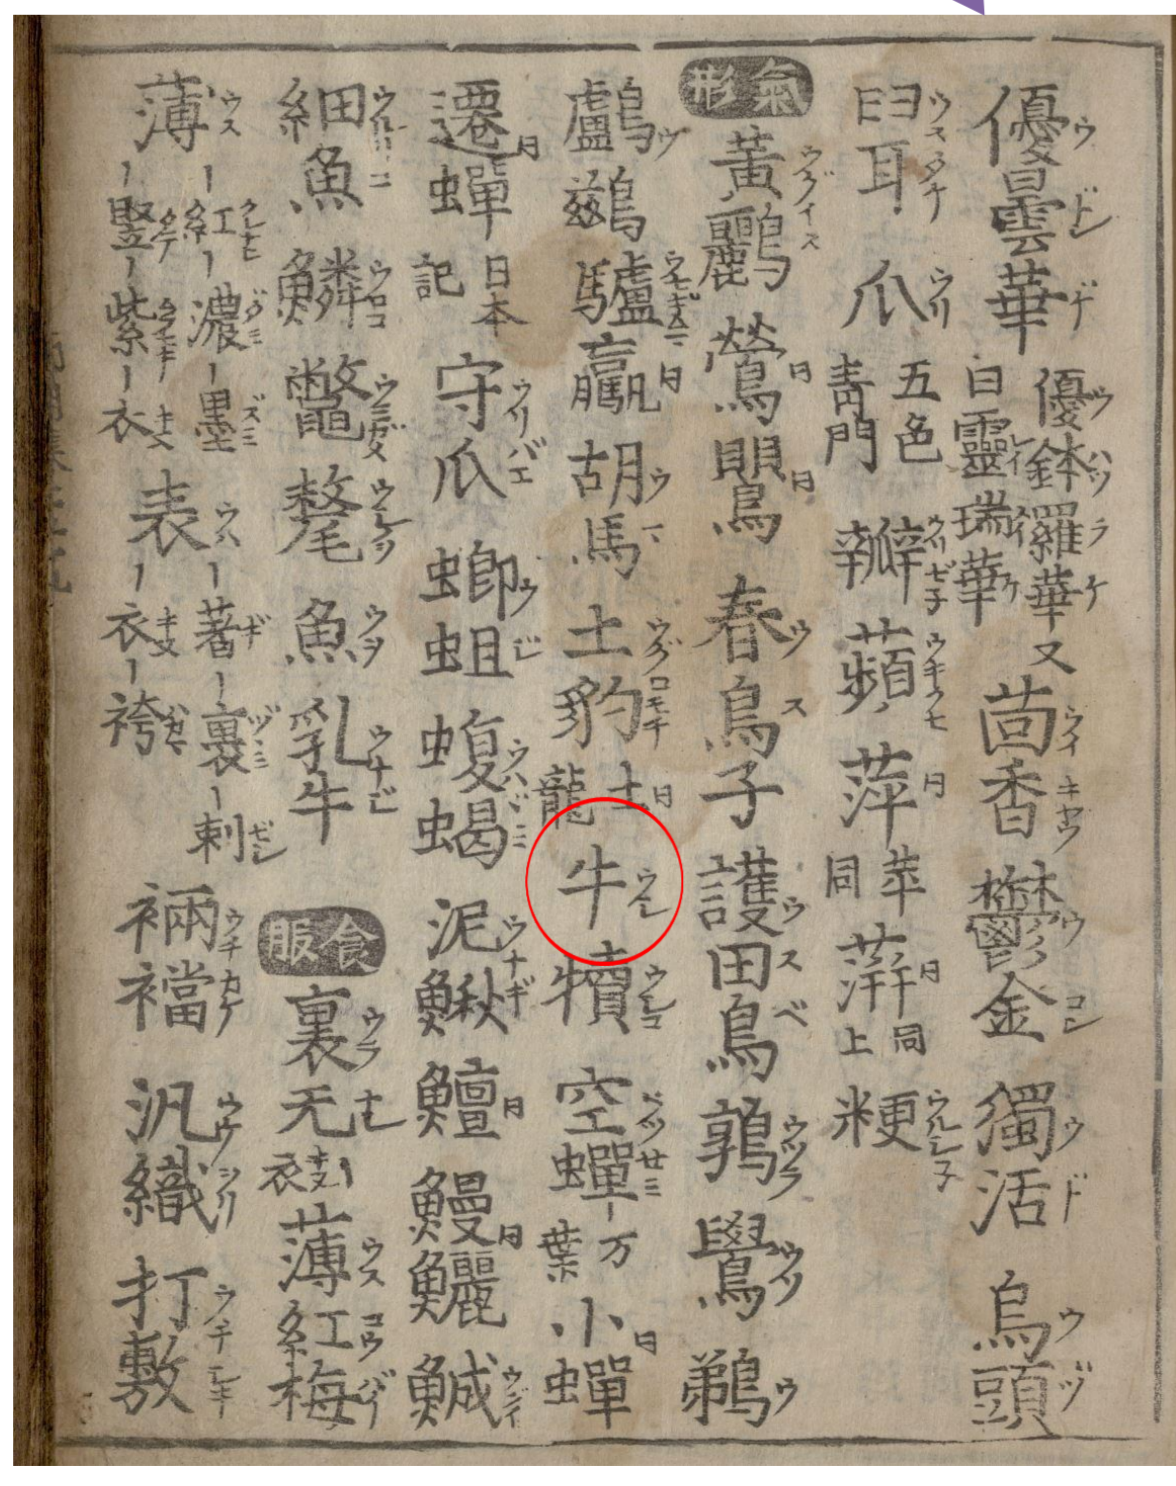 優曇華 ウドンゲ 優鉢羅華又 ウハツラケ 白靈瑞華 茴香 ウイキヤウ 鬱金 ウコン 獨活 ウド 烏頭 ウヅ
臼耳 ウスタケ 爪 ウリ 五色 青門 瓣 ウリザ子 蘋 ウキクサ 萍 同 苹 同 蓱 同 同上 粳 ウルシ子
氣形 黃鸝 ウグイス 鶯 同 鸎 同 春鳥子 ウス 護田鳥 ウスベ 鶉 ウヅラ 鷽 ウソ 鵜 ウ
鸕鷀 ウ 驢 ウサギムマ 驘 同 胡馬 ウマ 土豹 ウグロモチ 土龍 同 牛 ウシ 犢 ウシコ 空蟬 ウツセミ ー万葉 小蟬 同
遷蟬 同 日本記 守瓜 ウリバエ 蝍蛆 ウジ 蝮蝎 ウハバミ 泥鰍 ウナギ 鱣 同 鰻鱺 同 鰔
細魚 鱗 ウロコ 鼈 ウミガメ 氂 魚 ウヲ 乳牛 ウナジ 食服 裏无 ウラナシ ー衣 薄紅梅 ウスコウバイ
薄 ウス ー紅 クレナヒ ー濃 ダミ ー墨 ズミ ー竪 タテ ー紫 ー衣 キヌ 表 ウハ ー著 ギ ー裏 ヅミ ー刺 ザシ ー衣 キヌ ー袴 裲襠 ウチカケ 汎織 打敷 ウチシキ